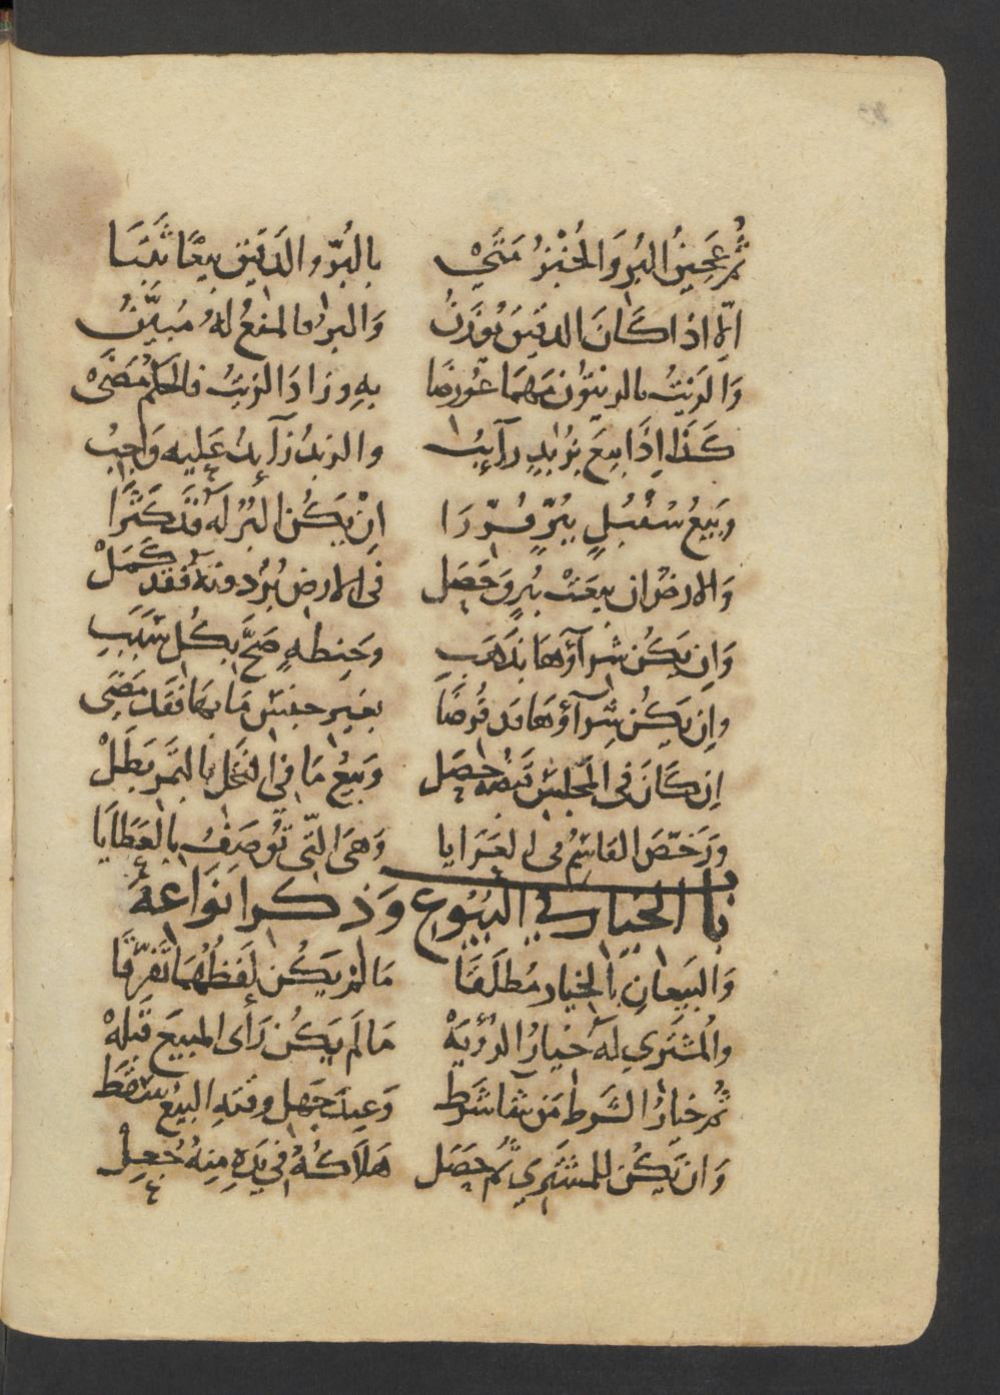 ثُمَّ عَجِينُ البُرِّ وَالخُبْزُ مَتَى بِالبُرِّ والدَقِيق بِيعًا ثَبَتَا
اِلّا اِذا كَانَ الدقيقَ يُوزَنُ وَالبرُّ فالمنعُ لَهُ مُبَيَّنُ
وَالزَيتُ بالزيتُونِ مَهمَا عُورِضَا بهِ وزادَ الزيتُ فالحكمُ مَضَى
كَذَا اِذَا بِيعَ بزُبدٍ رآيبُ والزبدُ زآيدُ عَليه وَاجبُ
وبَيعُ سُنْبُلٍ ببُرٍّ قُرّرَا اِنْ يَكُن البُرُّ لَهُ قَد كَثُرَا
وَالارضُ ان بيعَتْ ببُرٍ وَحَصَل فى الارض بُرٌّ دونهُ فَقَد كَمَلْ
وَاِن يَكُن شِرآؤهَا بذَهَبِ وحَنطهٍ صَحَّ بِكُل سَبَبِ
واِن يكُن شِرآؤهَا قد فُرضَا بغيرِ جِنسٍ مَا بهَا فَقَد مَضَى
اِن كَانَ فى المَجلسِ قبضُه حصَل وَبَيعُ مَا فى النَخْل بالتَمر بَطَلْ
وَرَخّصَ القاسِمُ فى العَرَايا وَهىَ التّى تُوصَفُ بالعَطَايَا
باب الخيار في البُيُوع وَذكر انوَاعهَ
وَالبيعانِ بالخيار مُطلَقَا مَا لَمْ يَكُن لَفظُهُمَا تَفَرَّقَا
وَالمُشتَرِي لَه خيَارُ الرُؤيَهْ مَا لَم يَكُن رَأى المبيعَ قَبلَهْ
ثُم خيارُ الشَرط مَن شَا شَرط وَعِندَ جَهلِ وقتهِ البيعُ سَقَطْ
وَان يَكُن للمُشتَرِي ثُم حَصَل هَلَاكُهُ فى يَدِهِ مِنهُ جُعِلْ